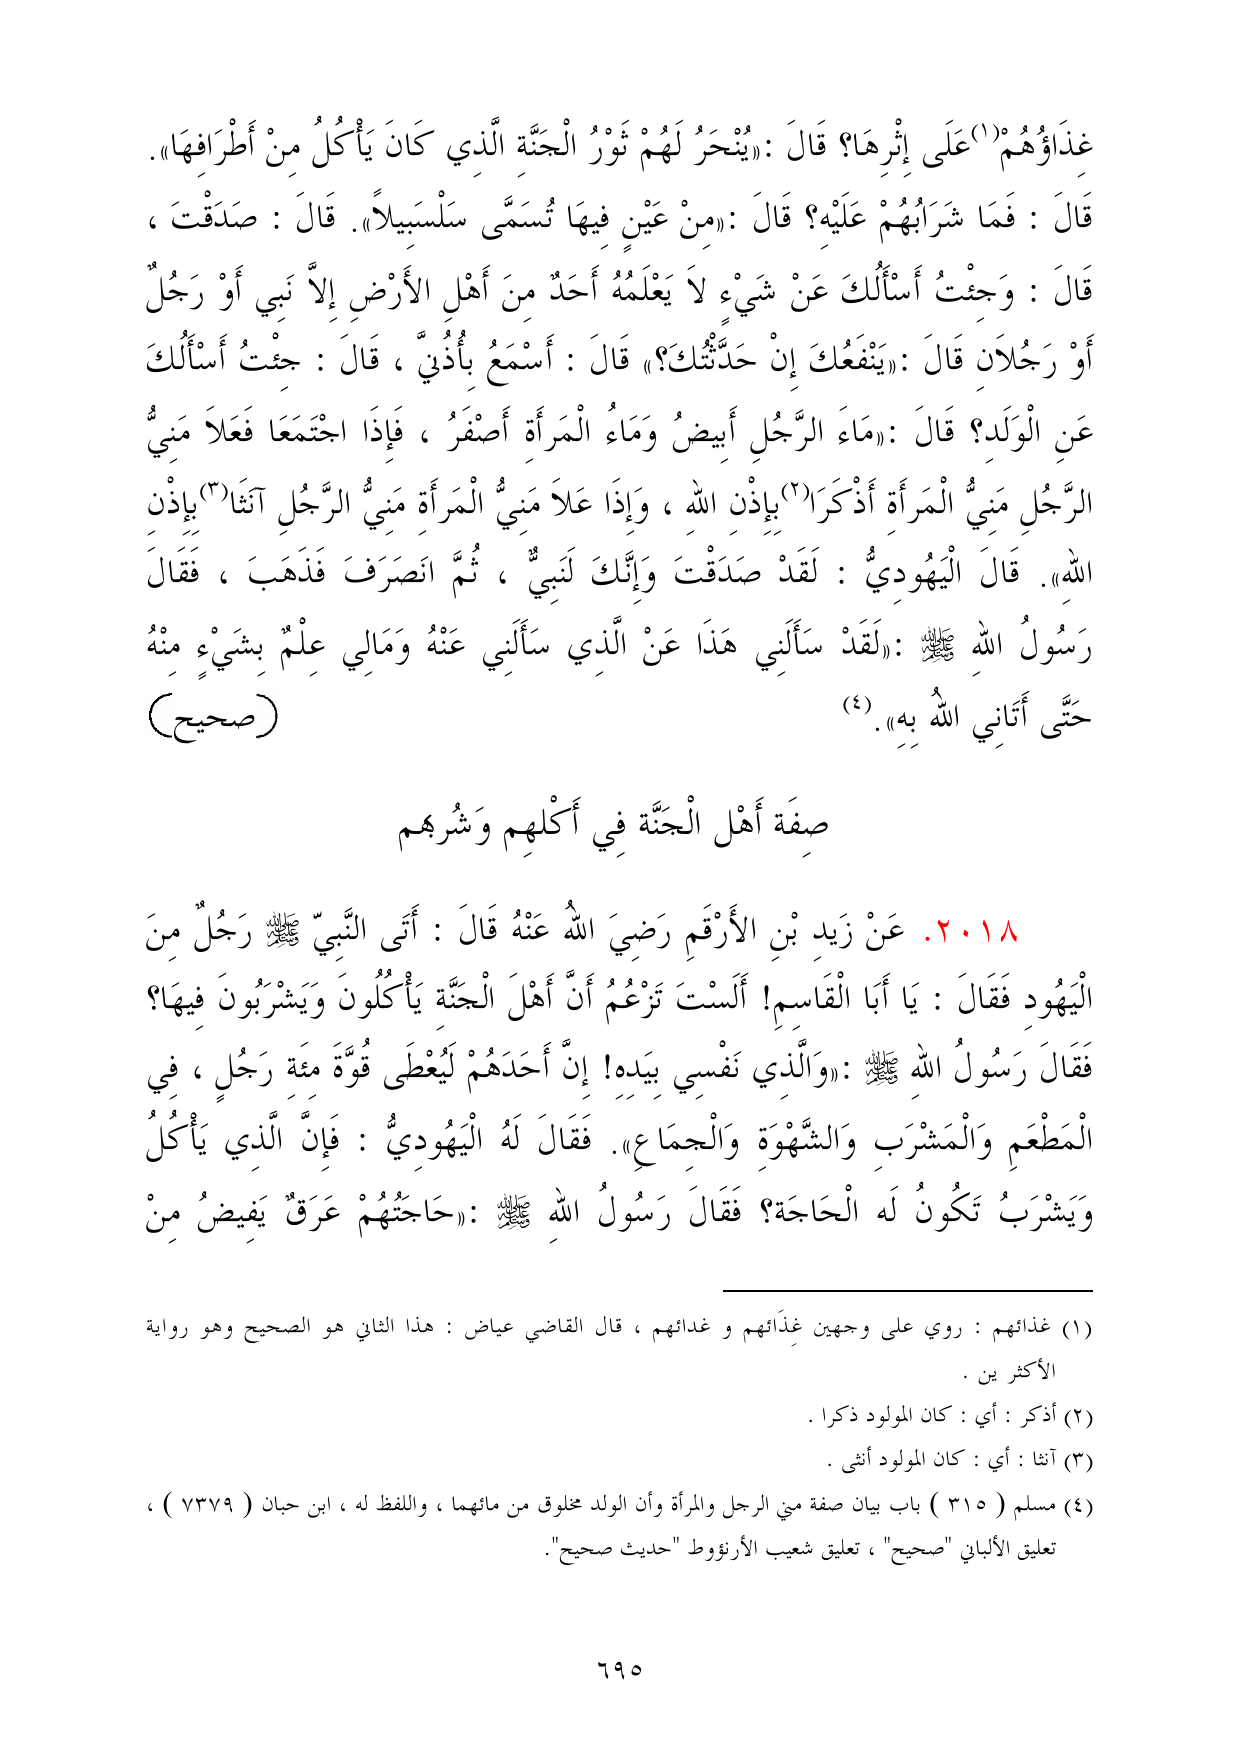 غِذَاؤُهُمْ(١)عَلَى إِثْرِهَا؟ قَالَ :«يُنْحَرُ لَهُمْ ثَوْرُ الْجَنَّةِ الَّذِي كَانَ يَأْكُلُ مِنْ أَطْرَافِهَا».
قَالَ : فَمَا شَرَابُهُمْ عَلَيْهِ؟ قَالَ :«مِنْ عَيْنٍ فِيهَا تُسَمَّى سَلْسَبِيلاً». قَالَ : صَدَقْتَ ،
قَالَ : وَجِئْتُ أَسْأَلُكَ عَنْ شَيْءٍ لاَ يَعْلَمُهُ أَحَدٌ مِنَ أَهْلِ الأَرْضِ إِلاَّ نَبِي أَوْ رَجُلٌ
أَوْ رَجُلاَنِ قَالَ :«يَنْفَعُكَ إِنْ حَدَّثْتُكَ؟» قَالَ : أَسْمَعُ بِأُذُنَيَّ ، قَالَ : جِئْتُ أَسْأَلُكَ
عَنِ الْوَلَدِ؟ قَالَ :«مَاءَ الرَّجُلِ أَبِيضُ وَمَاءُ الْمَرأَة أَصْفَرُ ، فَإِذَا اجْتَمَعَا فَعَلاَ مَنِيُّ
الرَّجُلِ مَنِيُّ الْمَرأَة أَذْكَرَا(٢)بِإِذْنِ اللهِ ، وَإِذَا عَلاَ مَنِيُّ الْمَرأَةِ مَنِيُّ الرَّجُلِ آنَثَا(٣)بِإِذْنِ
اللهِ». قَالَ الْيَهُودِيُّ : لَقَدْ صَدَقْتَ وَإِنَّكَ لَنَبِيٌّ ، ثُمَّ انَصَرَفَ فَذَهَبَ ، فَقَالَ
رَسُولُ اللهِ ﷺ :«لَقَدْ سَأَلَنِي هَذَا عَنْ الَّذِي سَأَلَنِي عَنْهُ وَمَالِي عِلْمٌ بِشَيْءٍ مِنْهُ
حَتَّى أَتَانِي اللهُ بِهِ».(٤) (صحيح)
صِفَة أَهْل الْجَنَّة فِي أَكْلهِم وَشُربهم
٢٠١٨. عَنْ زَيدِ بْنِ الأَرْقَمِ رَضِيَ اللهُ عَنْهُ قَالَ : أَتَى النَّبِيّ ﷺ رَجُلٌ مِنَ
الْيَهُودِ فَقَالَ : يَا أَبَا الْقَاسِمِ! أَلَسْتَ تَزْعُمُ أَنَّ أَهْلَ الْجَنَّةِ يَأْكُلُونَ وَيَشْرَبُونَ فِيهَا؟
فَقَالَ رَسُولُ اللهِ ﷺ :«وَالَّذِي نَفْسِي بِيَدِهِ! إِنَّ أَحَدَهُمْ لَيُعْطَى قُوَّةَ مِئَةِ رَجُلٍ ، فِي
الْمَطْعَمِ وَالْمَشْرَبِ وَالشَّهْوَةِ وَالْجِمَاعِ». فَقَالَ لَهُ الْيَهُودِيُّ : فَإِنَّ الَّذِي يَأْكُلُ
وَيَشْرَبُ تَكُونُ لَه الْحَاجَة؟ فَقَالَ رَسُولُ اللهِ ﷺ :«حَاجَتُهُمْ عَرَقٌ يَفِيضُ مِنْ
(١) غذائهم : روي على وجهين غِذَائهم و غدائهم ، قال القاضي عياض : هذا الثاني هو الصحيح وهو رواية
الأكثر ين .
(٢) أذكر : أي : كان المولود ذكرا .
(٣) آنثا : أي : كان المولود أنثى .
(٤) مسلم ( ٣١٥ ) باب بيان صفة مني الرجل والمرأة وأن الولد مخلوق من مائهما ، واللفظ له ، ابن حبان ( ٧٣٧٩ ) ،
تعليق الألباني "صحيح" ، تعليق شعيب الأرنؤوط "حديث صحيح".
٦٩٥